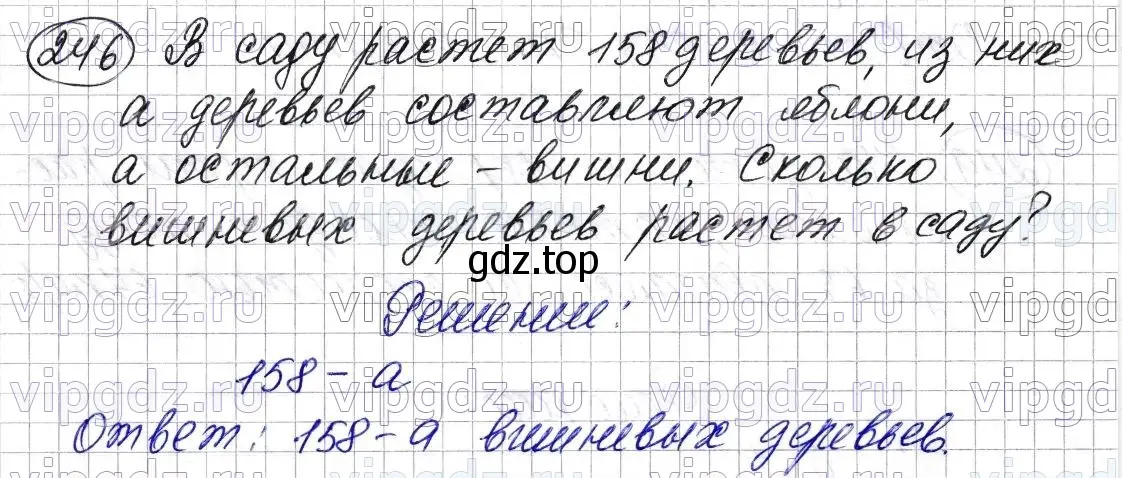 246 В саду растет 158 деревьев, из них
а деревьев составляют яблони,
а остальные – вишни. Сколько
вишневых деревьев растет в саду?
gdz.top
Решение:
158 – а
Ответ: 158 – а вишневых деревьев.
vipgdz.ru